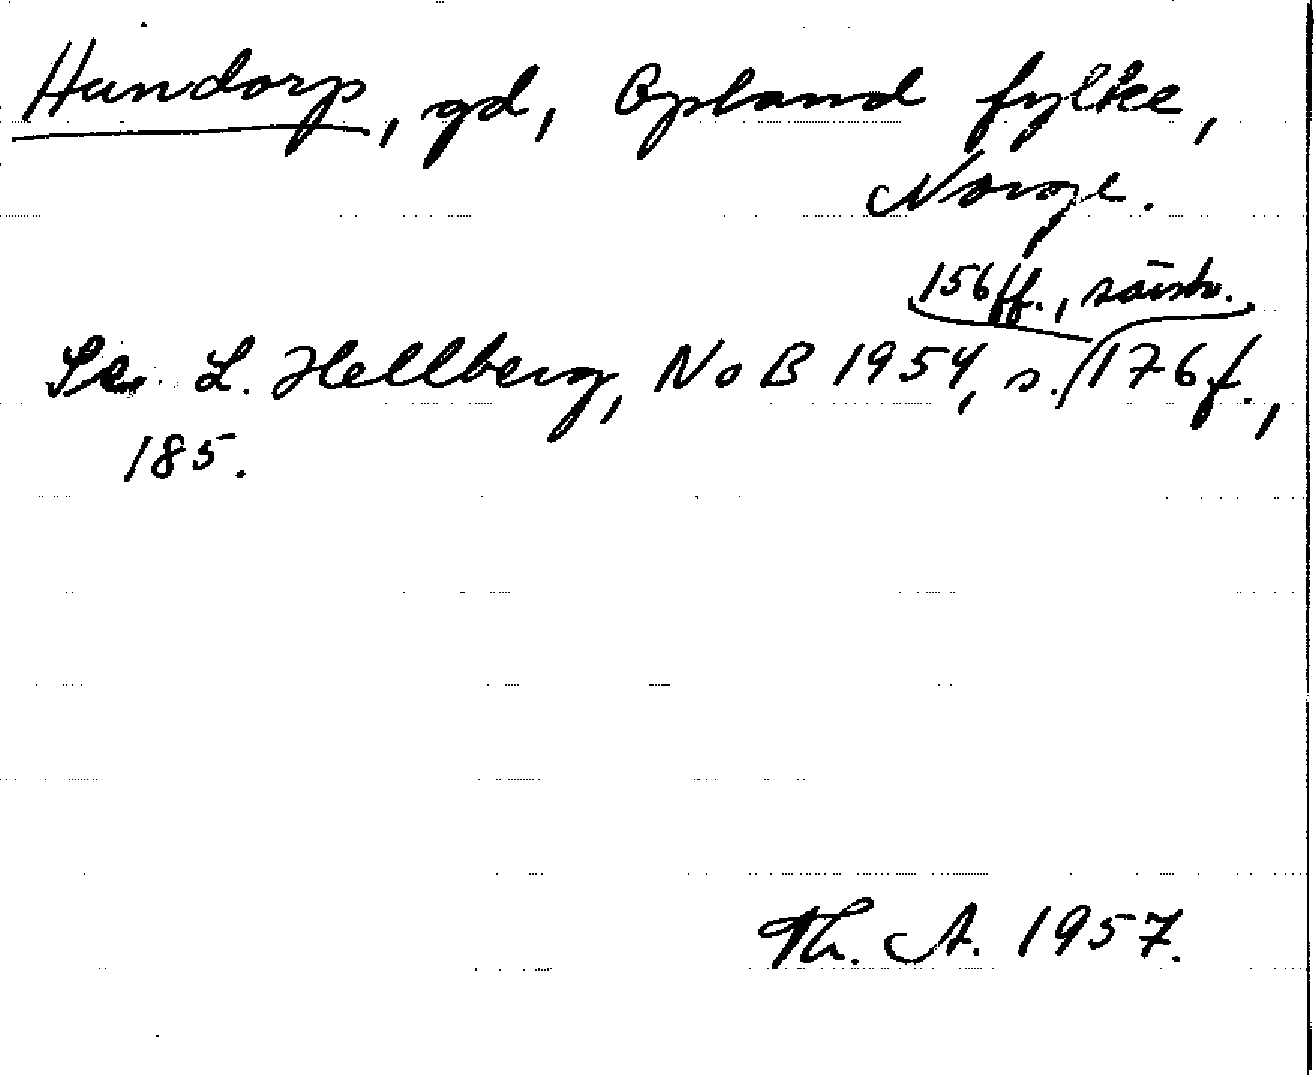 Hundorp, gd, Opland fylke,
Norge.
156 ff., särsk.
Se L. Hellberg, NoB 1954, s. 176 f.,
185.
Th. A. 1957.